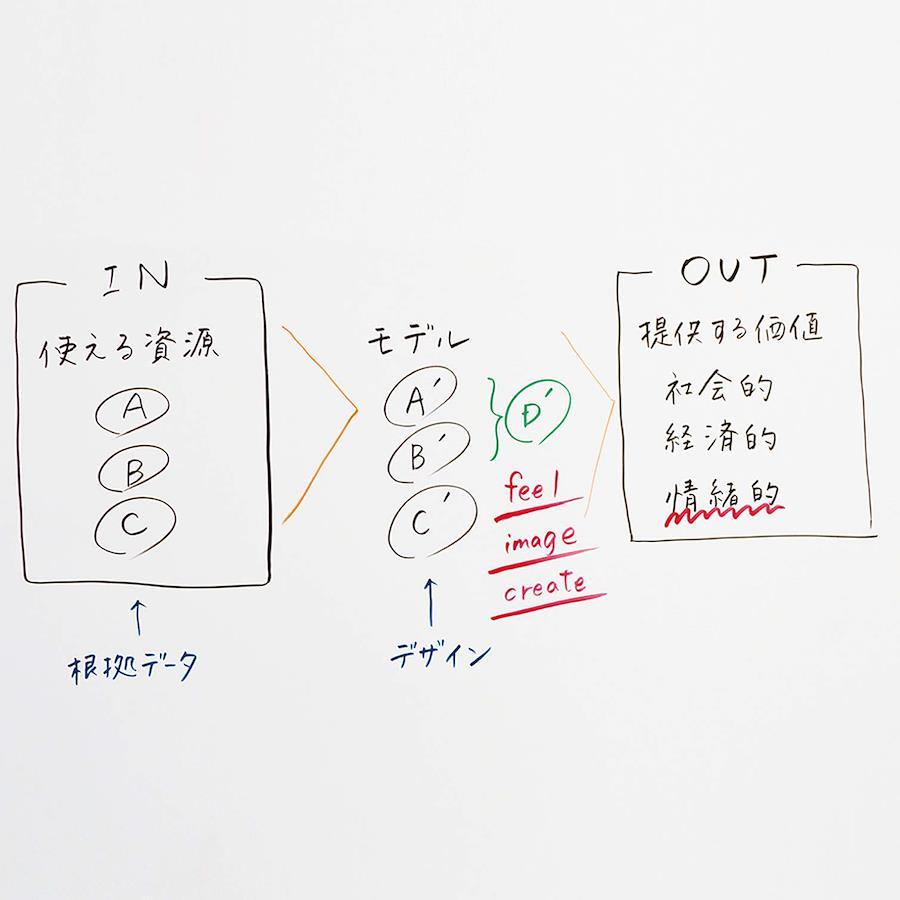 IN
使える資源
A
B
C
根拠データ
モデル
A′
B′
C′
D′
feel
image
create
デザイン
OUT
提供する価値
社会的
経済的
情緒的